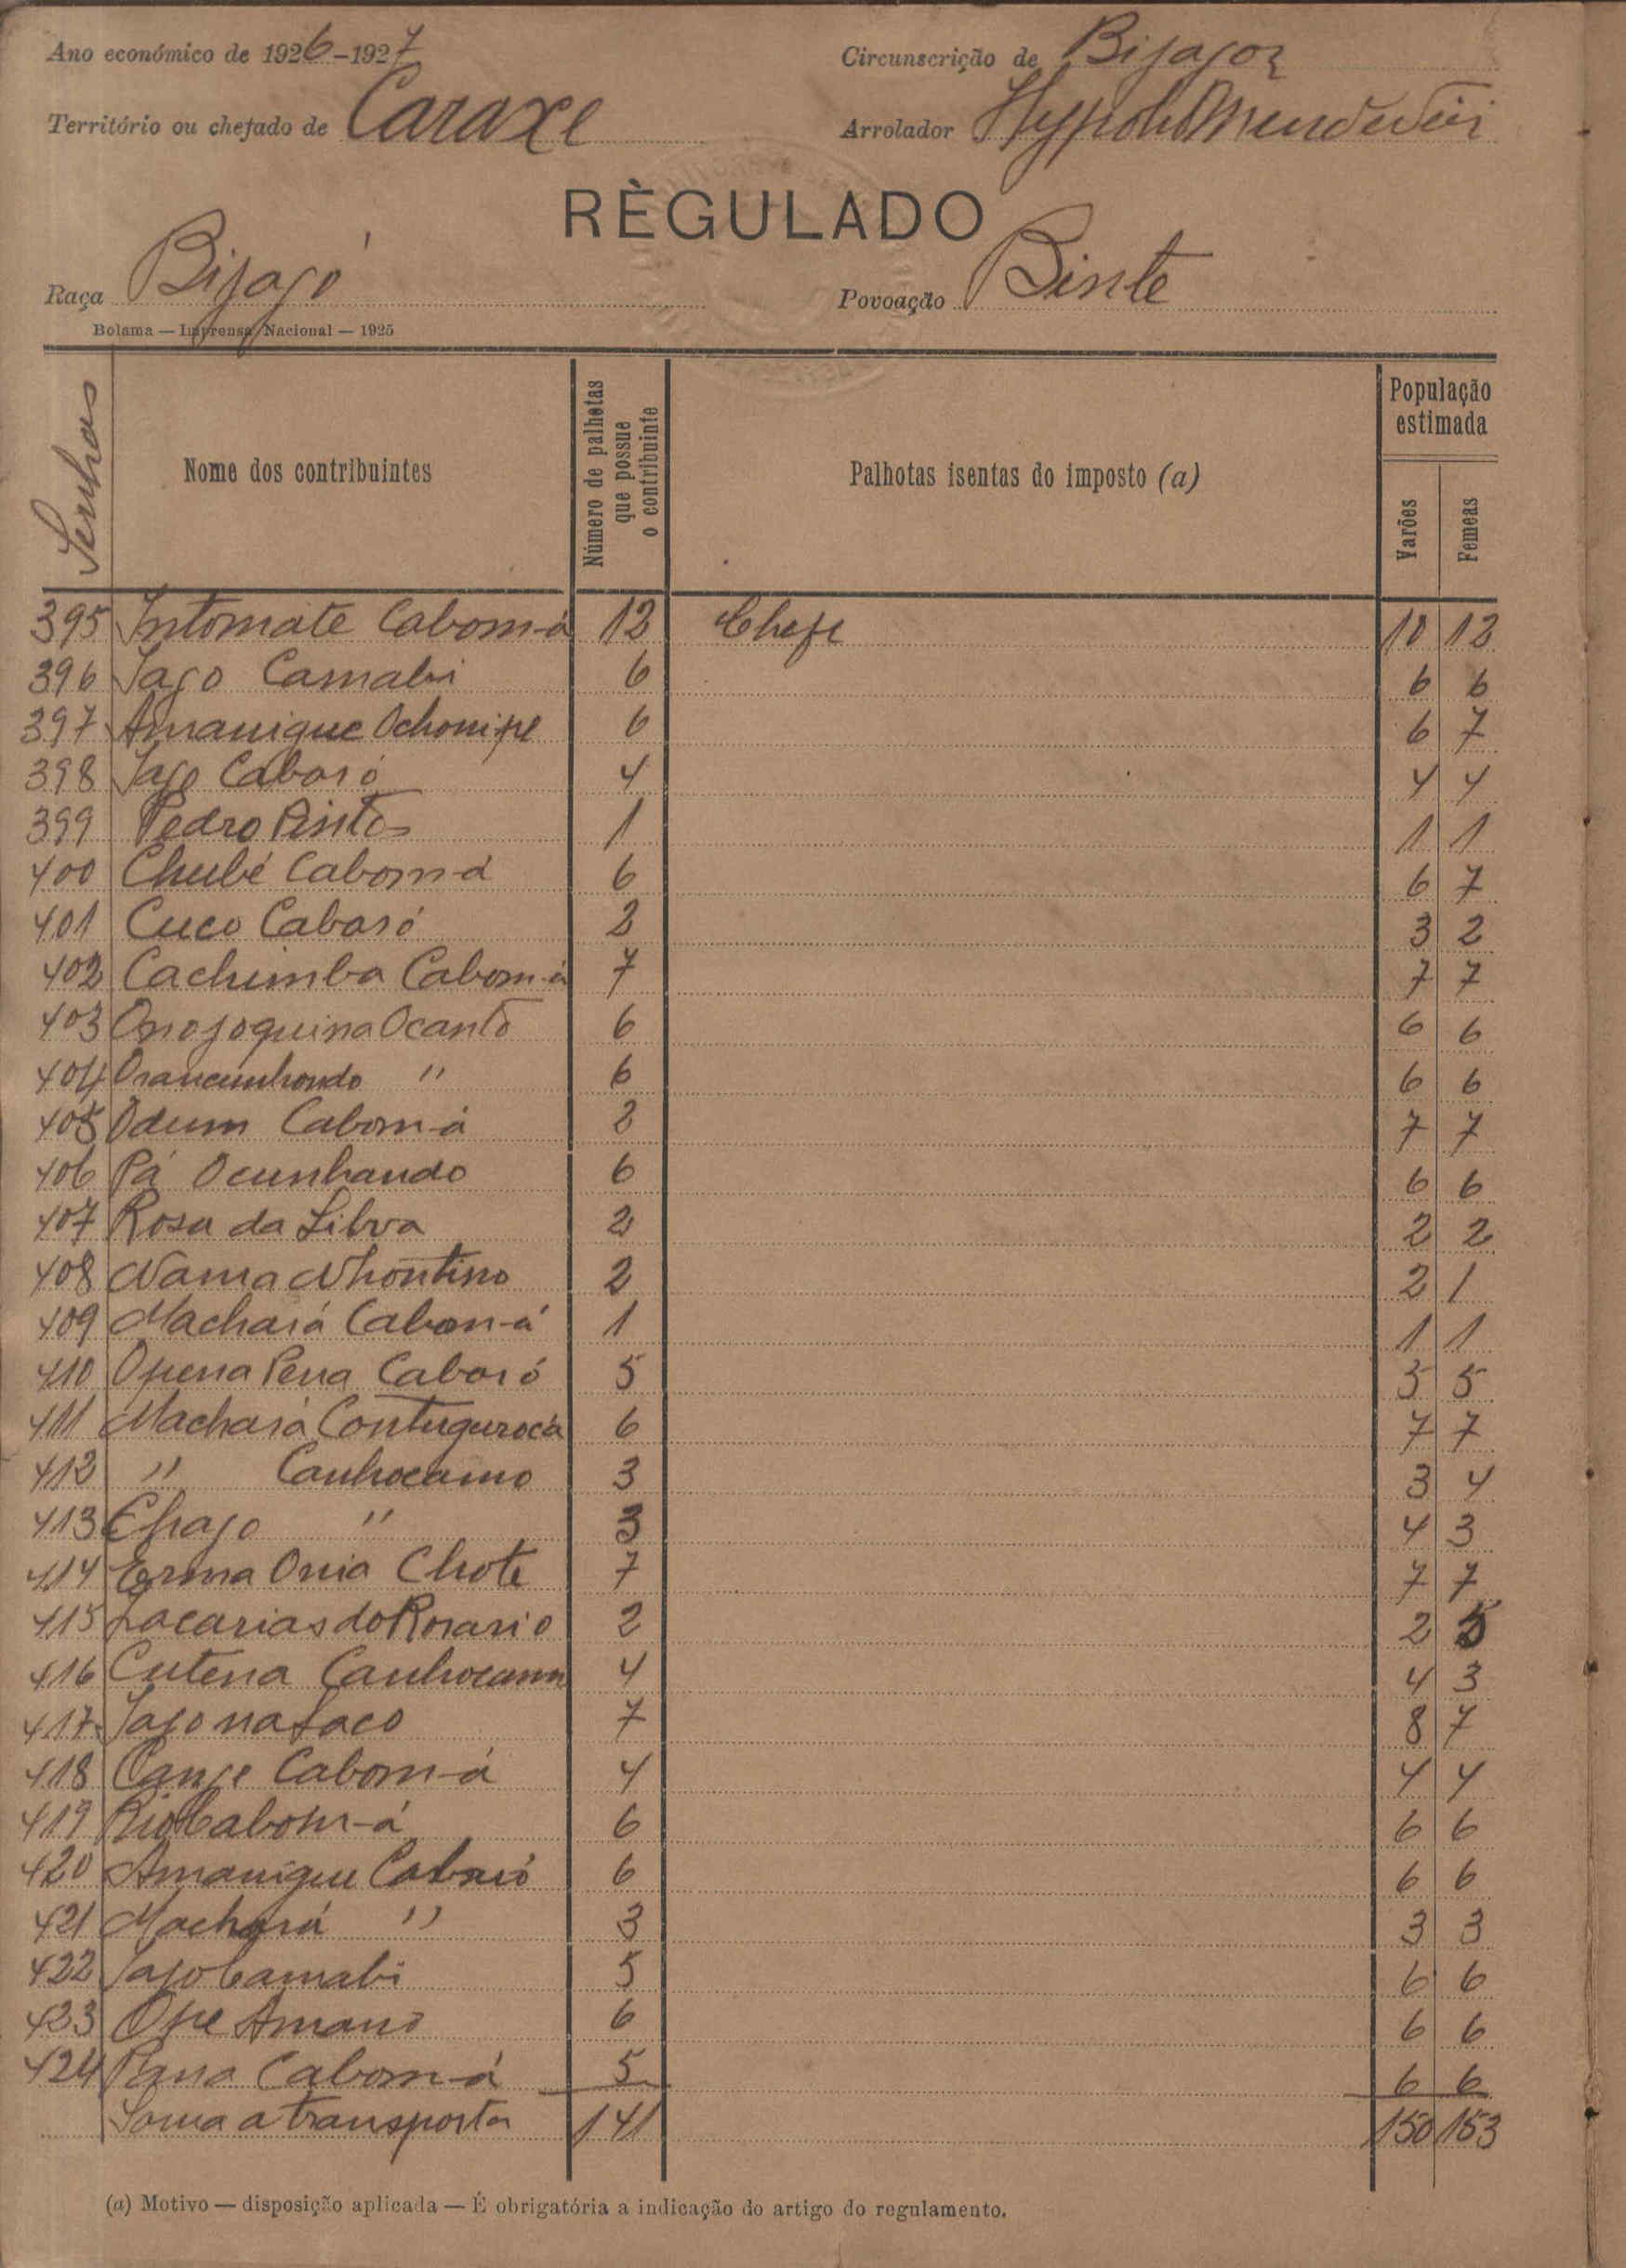 Ano económico de 1926-1927
Circunscrição de Bijagoz
Território ou chefado de Caraxe
Arrolador
RÈGULADO
Raça Bijagó
Povoação Binte
Bolama — Imprensa Nacional — 1925
Senhas
Nome dos contribuintes
Número de palhotas que possue o contribuinte
Palhotas isentas do imposto (a)
População estimada
Varões
Femeas
395 Intomate Cabom-á 12 Chefe 10 12
396 Jago Camabi 6 6 6
397 Amanique Ochonipe 6 6 7
398 Jago Cabaró 4 4 4
399 Pedro Pinto 1 1 1
400 Chubé Cabom-á 6 6 7
401 Cuco Cabaró 2 3 2
402 Cachimba Cabom-á 7 7 7
403 Onojoquina Ocantó 6 6 6
404 " 6 6 6
405 Odum Cabom-á 2 7 7
406 Pá Ocunhando 6 6 6
407 Rosa da Silva 2 2 2
408 Nama Nhontino 2 2 1
409 Machará Cabom-á 1 1 1
410 Opena Pena Cabaró 5 5 5
411 Machará 6 7 7
412 " Canhocamo 3 3 4
413 Ehajo " 3 4 3
414 Erma Onia Chote 7 7 7
415 Zacarias do Rosario 2 2 5
416 Cutena Canhocamo 4 4 3
417 Jago na Saco 7 8 7
418 Canje Cabom-á 4 4 4
419 Rio Cabom-á 6 6 6
420 Amanique Cabaró 6 6 6
421 Machará " 3 3 3
422 Jago Camabi 5 6 6
423 Ope Amano 6 6 6
424 Pana Cabom-á 5 6 6
Soma a transportar 141 150 153
(a) Motivo — disposição aplicada — É obrigatória a indicação do artigo do regulamento.